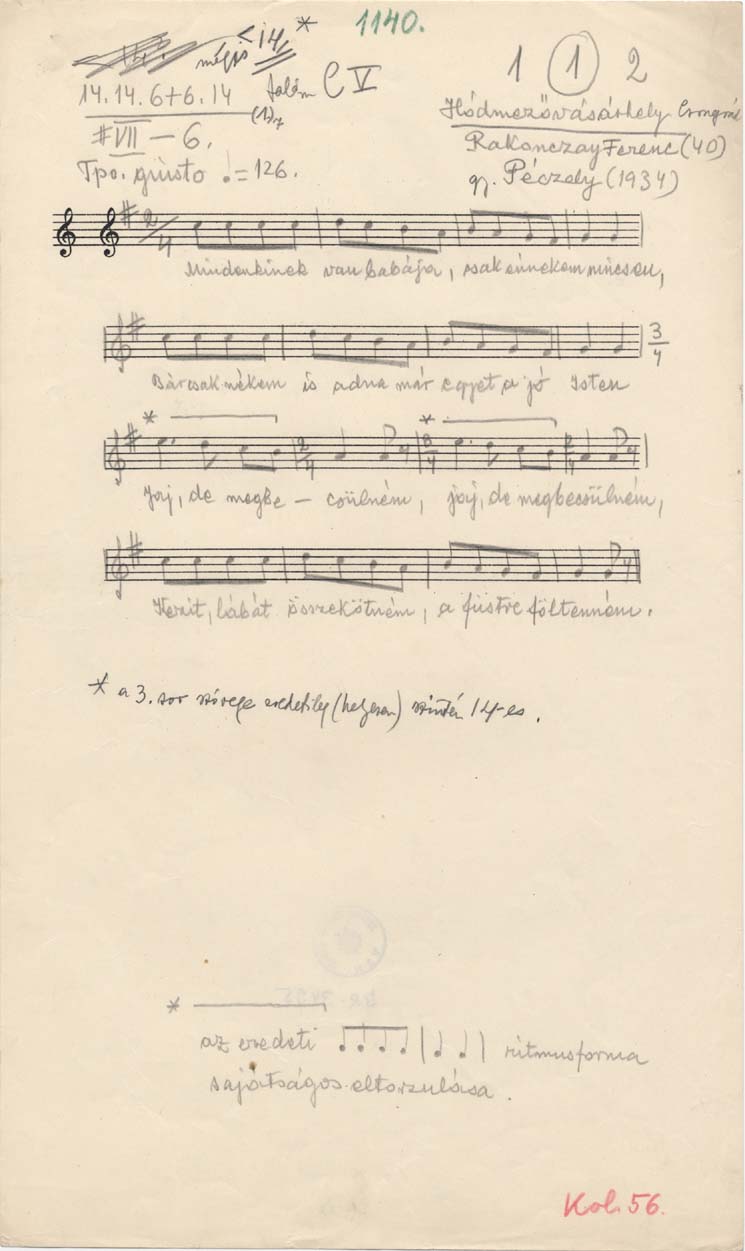 1140.
mégis 14 *
talán C V
1 1 2
14. 14. 6+6. 14
Hódmezővásárhely Csongrád
#VII — 6.
Rakonczay Ferenc (40)
Tpo. giusto ♩= 126.
gy. Péczely (1934)
2/4
Mindenkinek van babája, csak énnekem nincsen,
3/4
Bárcsak nékem is adna már egyet a jó Isten
* 2/4 * 3/4 2/4
Jaj, de megbe — csülném, jaj, de megbecsülném,
Kezit, lábát összekötném, a füstre föltenném.
* a 3. sor szövege eredetileg (helyesen) szintén 14-es.
*
az eredeti ritmusforma
sajátságos eltorzulása.
Kob. 56.